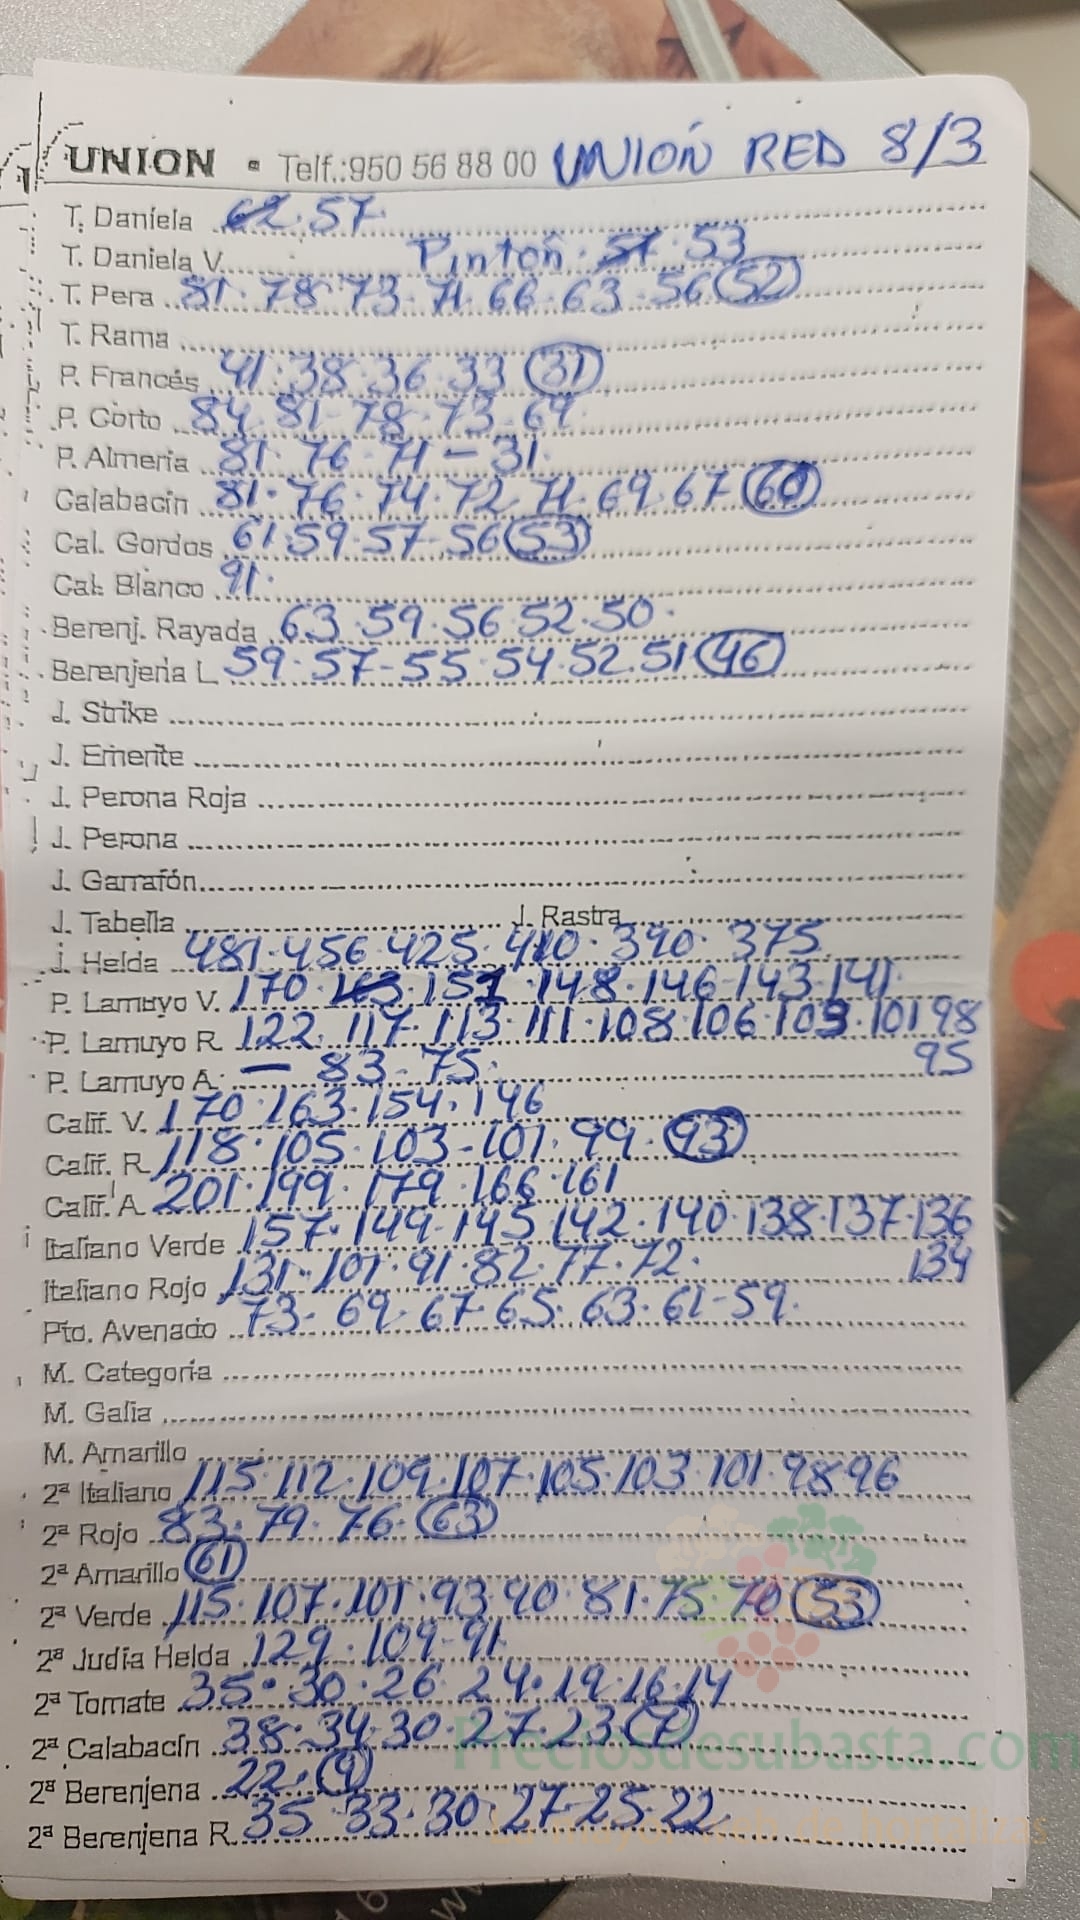 UNION - Telf.:950 56 88 00 UNIÓN RED 8/3
T. Daniela 62. 57.
T. Daniela V. Pinton. 53
T. Pera 81. 78. 73. 71. 66. 63. 56 52
T. Rama
P. Francés 41. 38. 36. 33 31
P. Corto 84. 81. 78. 73. 69
P. Almeria 81. 76. 71 - 31.
Calabacín 81. 76. 74. 72. 71. 69. 67 60
Cal. Gordos 61. 59. 57. 56 53
Cal. Blanco 91.
Berenj. Rayada 63. 59. 56. 52. 50.
Berenjena L. 59. 57. 55. 54. 52. 51 46
J. Strike
J. Emerite
J. Perona Roja
J. Perona
J. Garrafón
J. Tabella J. Rastra
J. Helda 481. 456. 425. 410. 390. 375
P. Lamuyo V. 170. 163. 151. 148. 146. 143. 141.
P. Lamuyo R. 122. 117. 113. 111. 108. 106. 103. 101 98
95
P. Lamuyo A. — 83. 75.
Calif. V. 170. 163. 154. 146
Calif. R. 118. 105. 103. 101. 99. 93
Calif. A. 201. 199. 179. 166. 161
Italiano Verde 157. 149. 145. 142. 140. 138. 137. 136
134
Italiano Rojo 131. 101. 91. 82. 77. 72.
Pto. Avenado 73. 69. 67. 65. 63. 61. 59.
M. Categoria
M. Galia
M. Amarillo
2ª Italiano 115. 112. 109. 107. 105. 103. 101. 98 96
2ª Rojo 83. 79. 76. 63
2ª Amarillo 61
2ª Verde 115. 107. 101. 93. 90. 81. 75. 70 53
2ª Judía Helda 129. 109. 91
2ª Tomate 35. 30. 26. 24. 19. 16. 14
2ª Calabacín 38. 34. 30. 27. 23. 7
2ª Berenjena 22. 9
2ª Berenjena R. 35. 33. 30. 27. 25. 22
Preciosdesubasta.com
La mayor web de hortalizas